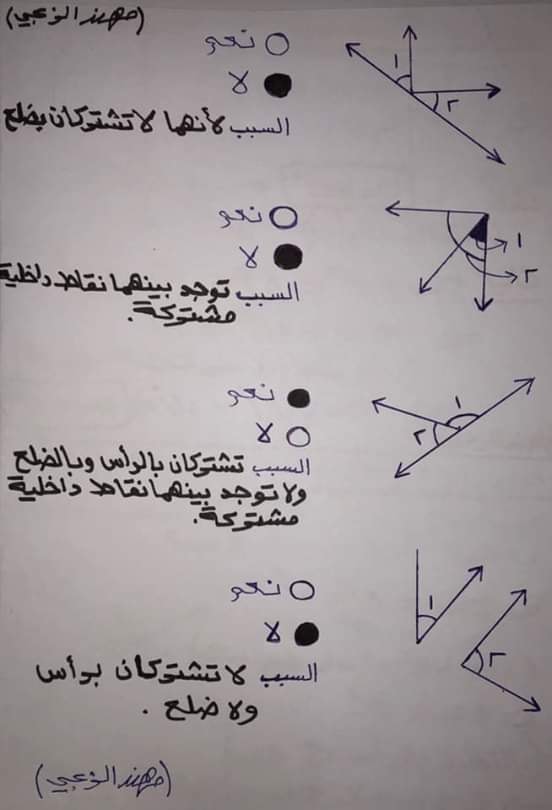 (مهند الزعبي)
نعم
لا
السبب لأنهما لا تشتركان بضلع
١
٢
نعم
لا
السبب توجد بينهما نقاط داخلية
مشتركة.
١
٢
نعم
لا
السبب تشتركان بالرأس وبالضلع
ولا توجد بينهما نقاط داخلية
مشتركة.
١
٢
نعم
لا
السبب لا تشتركان برأس
ولا ضلع .
١
٢
(مهند الزعبي)